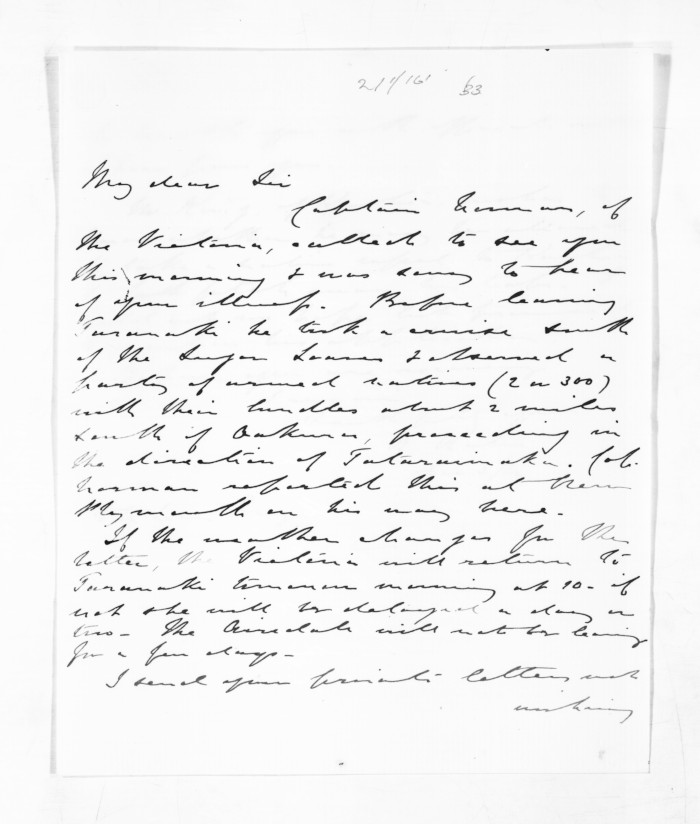 21/1/61 33
My dear Sir
Captain Norman, of
the Victoria, called to see you
this morning & was sorry to hear
of your illness. Before leaving
Taranaki he took a cruise south
of the Sugar Loaves & observed a
party of armed natives (2 or 300)
with their bundles about 2 miles
south of Oakura, proceeding in
the direction of Tataraimaka. Cap.
Norman reported this at New
Plymouth on his way here.
If the weather changes for the
better, the Victoria will return to
Taranaki tomorrow morning at 10 - if
not she will be delayed a day or
two - The Airedale will not be leaving
for a few days -
I send your private letters not
wishing